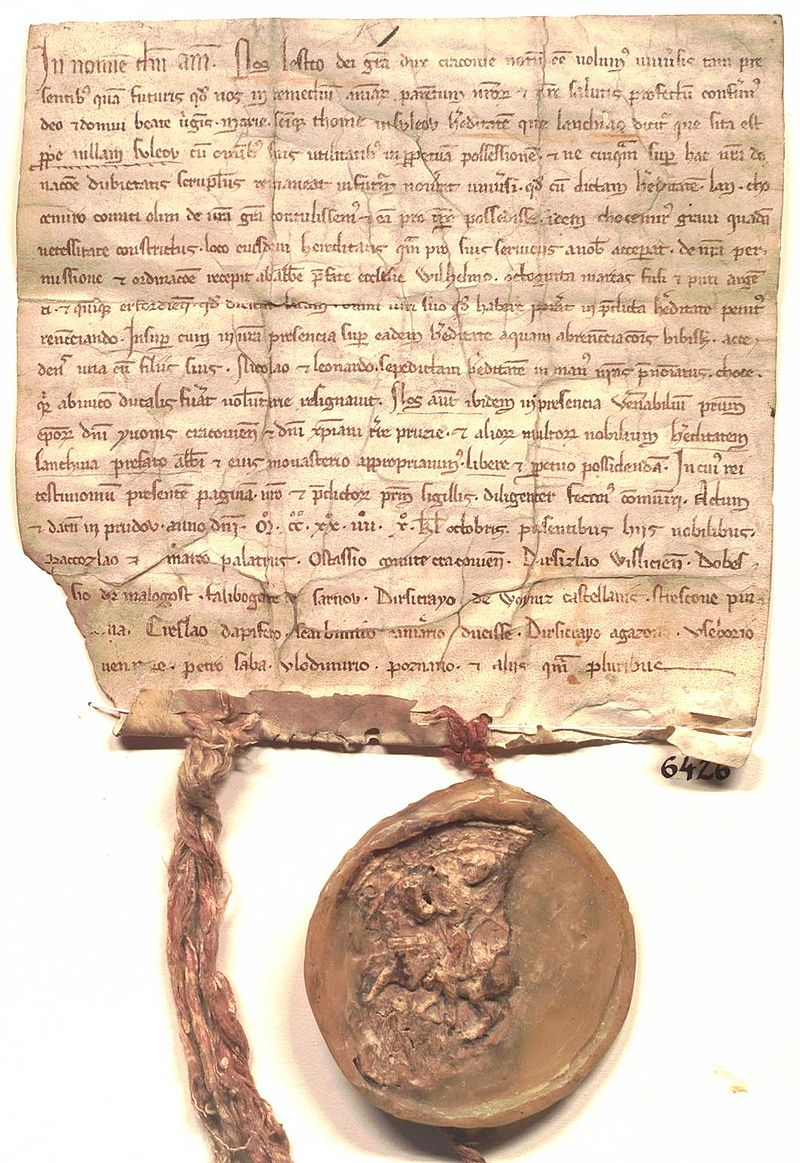 In noīe dn̄i am̄. Nos lestco dei grā dux cracouie notū ēē volum᾽ uniūsis tam pre
sentib᾽ quā futuris qd̓ nos in remediū animar. parentum nr̄or
deo et domui beate ūginis marie. thome in suleov hēditatē que lanchna dicit᾽ que sita est
ꝓpe uillam suleov cū omīb᾽ suis utilitatib᾽ in ꝑpetuā possessionē. et ne cuiq᾽m sup hac nr̄a do
nacōe dubietatis scrupl᾽us remaneat in futur̄ nouīt uniūsi. qd̓ cū dictam hēditatē. lan. cho
cemiro comiti olim de nr̄a grā contulissem᾽ et eā pro possediss. idem chocemir᾽ graui quadā
necessitate constrictus. loco eiusdem hereditatis qm̄ pro suis seruiciis a nob̓ accepat. de nr̄a per
missione et ordinacōe recepit ab abbe p̄fate ecclesie Wilhelmo. octoginta marcas fusi et puri argē
ti. et quinq᾽ qd̓ iuri suo qd̓ habere in p̄dicta hēditate penit᾽
renūciando. Insup cum in nr̄a presencia sup eadem hēditate aquam abrenūciacōis bibiss. acce
dens una cū filiis suis. Nicolao et leonardo. sepedictam hēditatē in man᾽ nr̄as p̄nōiatus. choce
mir᾽ ab inuico ducalis fūat uoluntarie resignauit. Nos aūt ibidem in presencia uen̄abilium patrum
ep̄or dn̄i yuonis cracouien̄ et dn̄i xp̄iani pruzie. et alior multor nobilium hēditatem
lanchna prefato abb̄i et eius monasterio appropriauim᾽. libere et ꝑpetuo possidendā. In cui᾽ rei
testimonium presentē paginā. nr̄o et p̄dictor patrm̄ sigillis. diligenter fecim᾽ comuniri. Actum
et datū in prudov. anno dn̄i. ꝏ. cc. xx. iiii. x. kl̄ octobris. presentibus hiis nobilibus.
Paccozlao et marco palatiis. Ostassio comite cracouien̄. Dirsizlao Wislicien̄. Dobes
lio de malogost. falibogone de sarnov. Dirsicrayo de Woyniz castellanis. stiescone pin
cerna. Cieslao dapifero. ducisse. Dirsicrayo agazone. Vseborio
uenatore. petro saba. Vlodimirio. poznano. et aliis qm̄ pluribus
6426